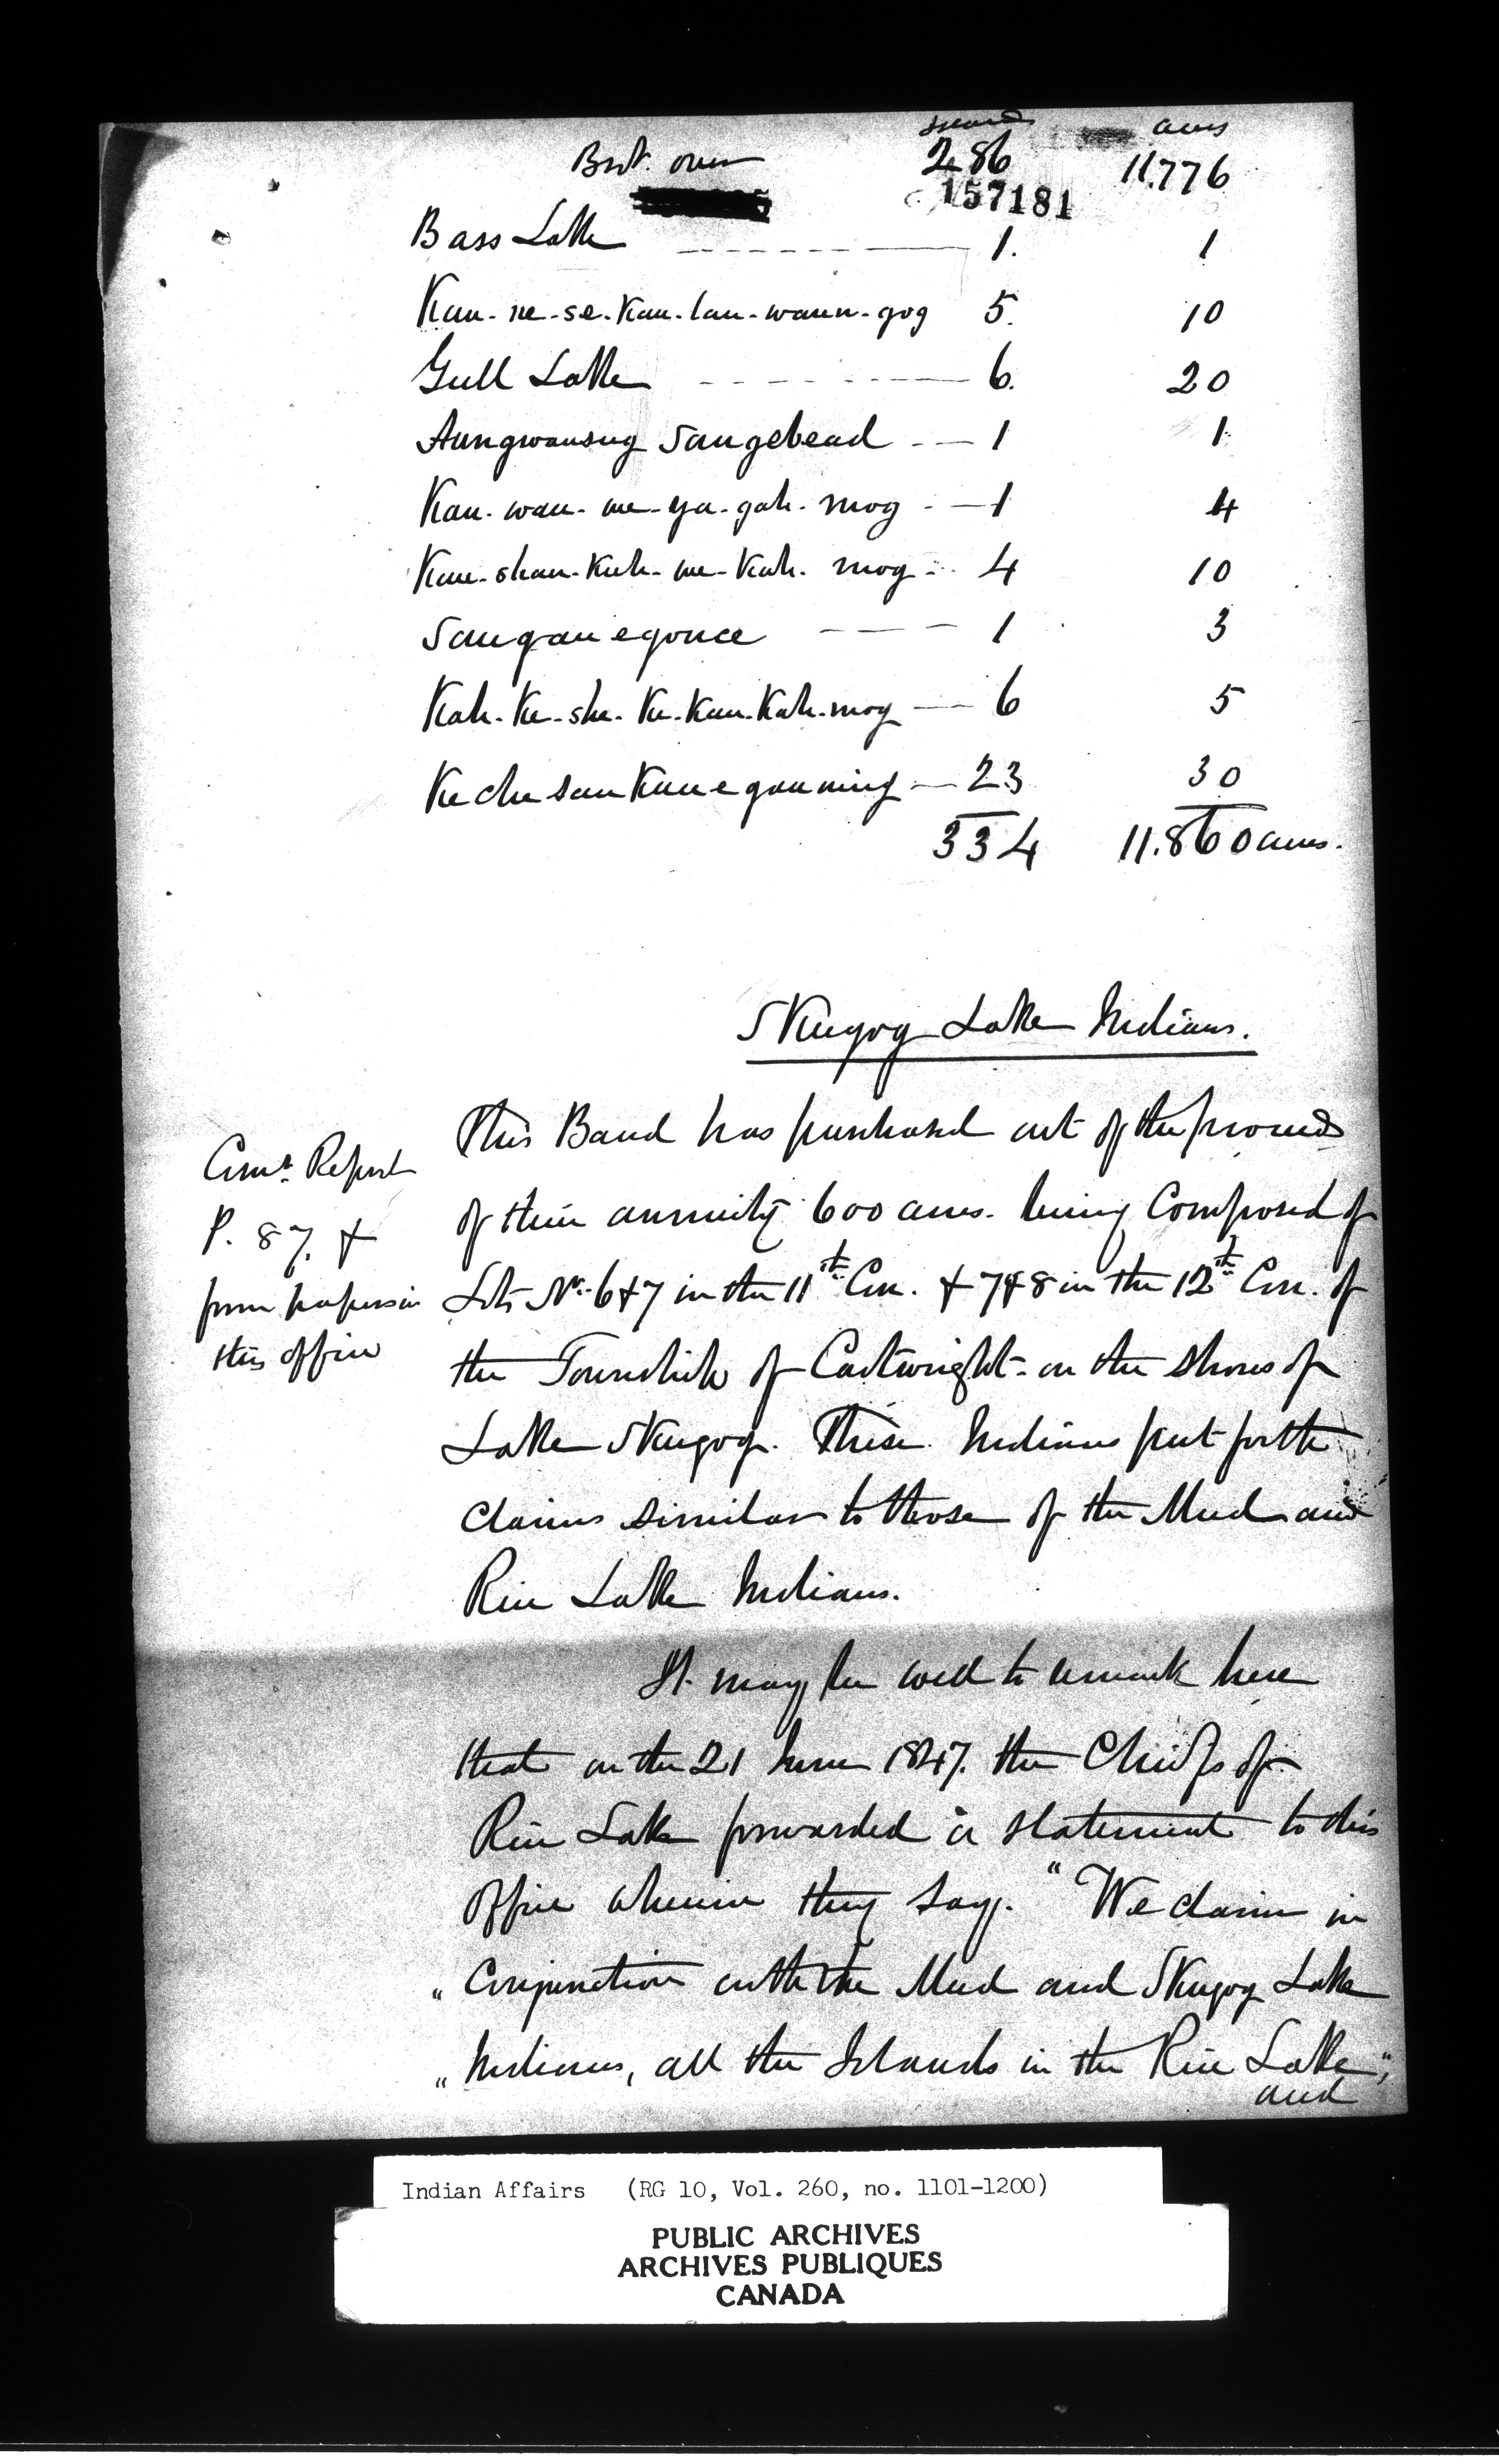 Islands acres
Brot. over 286 11.776
157181
Bass Lake 1. 1
Kau-ne-se-kau-lau-waun-gog 5. 10
Gull Lake 6. 20
Aungwausug Saugebead 1 1
Kau-wau-me-ya-gah-mog 1 4
Kau-shau-kuh-me-kah-mog 4 10
Saugauegonce 1 3
Kah-ke-she-ke-kau-kah-mog 6 5
Keche sau kau e gau ming 23 30
334 11.860 acres.
Skugog Lake Indians.
This Band has purchased out of the proceeds
of their annuity 600 acres. being Composed of
Lots Nos. 6 & 7 in the 11th. Con. & 7 & 8 in the 12th. Con. of
the Township of Cartwright - on the Shores of
Lake Skugog. These Indians put forth
Claims similar to those of the Mud and
Rice Lake Indians.
Comrs. Report
P. 87. &
from papers in
this office
It may be well to remark here
that on the 21 June 1847. the Chiefs of
Rice Lake forwarded a statement to this
Office wherein they say. "We claim in
" Conjunction with the Mud and Skugog Lake
" Indians, all the Islands in the Rice Lake,"
and
Indian Affairs (RG 10, Vol. 260, no. 1101-1200)
PUBLIC ARCHIVES
ARCHIVES PUBLIQUES
CANADA